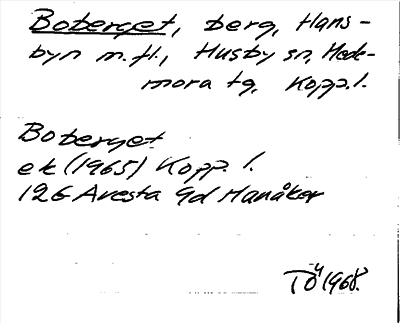 Boberget, berg, Hans-
byn m.fl., Husby sn, Hede-
mora tg, Kopp.l.
Boberget
ek (1965) Kopp. l.
12G Avesta 9d Manåker
TÖ 1968.